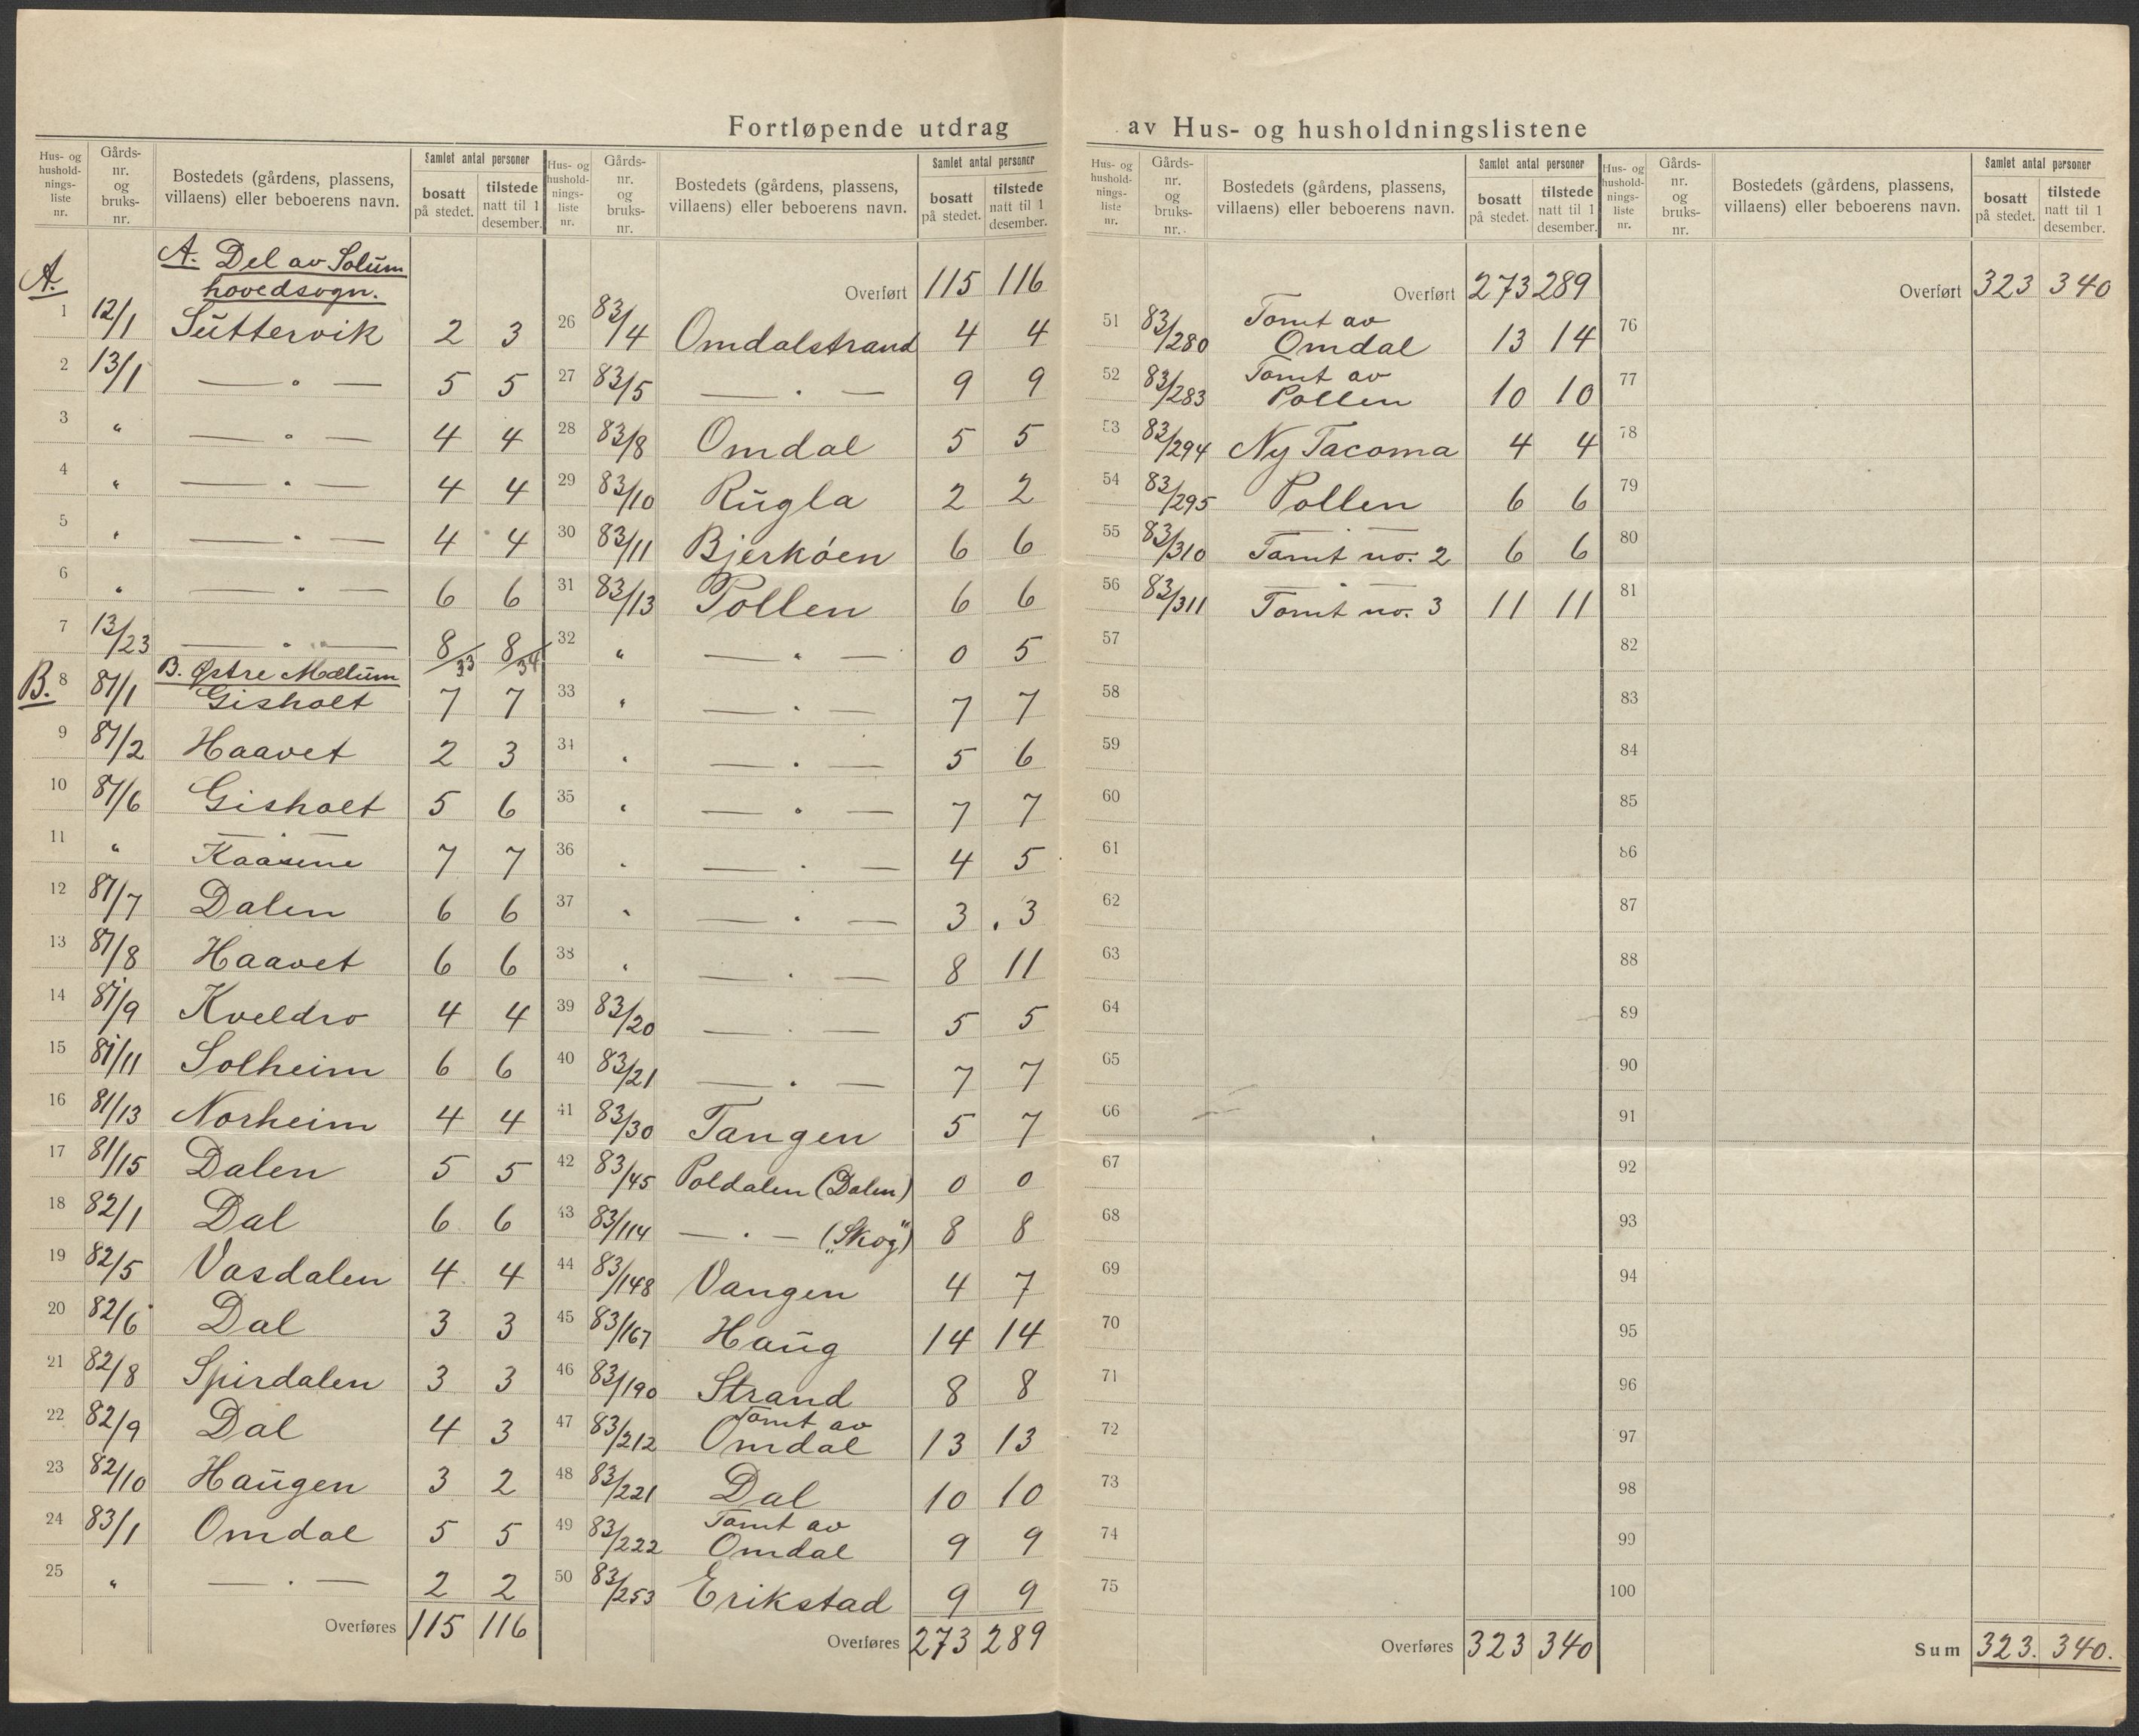 Fortløpende utdrag av Hus- og husholdningslistene
Hus- og hushold-nings-liste nr. Gårds-nr. og bruks-nr. Bostedets (gårdens, plassens, villaens) eller beboerens navn. Samlet antal personer bosatt på stedet. tilstede natt til 1 desember.
A. A. Del av Solum
hovedsogn.
1 12/1 Suttervik 2 3
2 13/1 — „ — 5 5
3 „ — „ — 4 4
4 „ — „ — 4 4
5 „ — „ — 4 4
6 „ — „ — 6 6
7 13/23 — „ — 8/33 8/34
B. B. Østre Mælum
8 81/1 Gisholt 7 7
9 81/2 Haavet 2 3
10 81/6 Gisholt 5 6
11 „ — „ — Kaasene 7 7
12 81/7 Dalen 6 6
13 81/8 Haavet 6 6
14 81/9 Kveldro 4 4
15 81/11 Solheim 6 6
16 81/13 Norheim 4 4
17 81/15 Dalen 5 5
18 82/1 Dal 6 6
19 82/5 Vasdalen 4 4
20 82/6 Dal 3 3
21 82/8 Spirdalen 3 3
22 82/9 Dal 4 3
23 82/10 Haugen 3 2
24 83/1 Omdal 5 5
25 „ — „ — 2 2
Overføres 115 116
Hus- og hushold-nings-liste nr. Gårds-nr. og bruks-nr. Bostedets (gårdens, plassens, villaens) eller beboerens navn. Samlet antal personer bosatt på stedet. tilstede natt til 1 desember.
Overført 115 116
26 83/4 Omdalstrand 4 4
27 83/5 — „ — 9 9
28 83/8 Omdal 5 5
29 83/10 Rugla 2 2
30 83/11 Bjerkøen 6 6
31 83/13 Pollen 6 6
32 „ — „ — 0 5
33 „ — „ — 7 7
34 „ — „ — 5 6
35 „ — „ — 7 7
36 „ — „ — 4 5
37 „ — „ — 3 3
38 „ — „ — 8 11
39 83/20 — „ — 5 5
40 83/21 — „ — 7 7
41 83/30 Tangen 5 7
42 83/45 Poldalen (Dalen) 0 0
43 83/114 — „ — („Skog") 8 8
44 83/148 Vangen 4 7
45 83/167 Haug 14 14
46 83/190 Strand 8 8
47 83/212 Tomt av
Omdal 13 13
48 83/221 Dal 10 10
49 83/222 Tomt av
Omdal 9 9
50 83/253 Erikstad 9 9
Overføres 273 289
Hus- og hushold-nings-liste nr. Gårds-nr. og bruks-nr. Bostedets (gårdens, plassens, villaens) eller beboerens navn. Samlet antal personer bosatt på stedet. tilstede natt til 1 desember.
Overført 273 289
51 83/280 Tomt av
Omdal 13 14
52 83/283 Tomt av
Pollen 10 10
53 83/294 Ny Tacoma 4 4
54 83/295 Pollen 6 6
55 83/310 — „ — Tomt no. 2 6 6
56 83/311 — „ — Tomt no. 3 11 11
57
58
59
60
61
62
63
64
65
66
67
68
69
70
71
72
73
74
75
Overføres 323 340
Hus- og hushold-nings-liste nr. Gårds-nr. og bruks-nr. Bostedets (gårdens, plassens, villaens) eller beboerens navn. Samlet antal personer bosatt på stedet. tilstede natt til 1 desember.
Overført 323 340
76
77
78
79
80
81
82
83
84
85
86
87
88
89
90
91
92
93
94
95
96
97
98
99
100
Sum 323. 340.